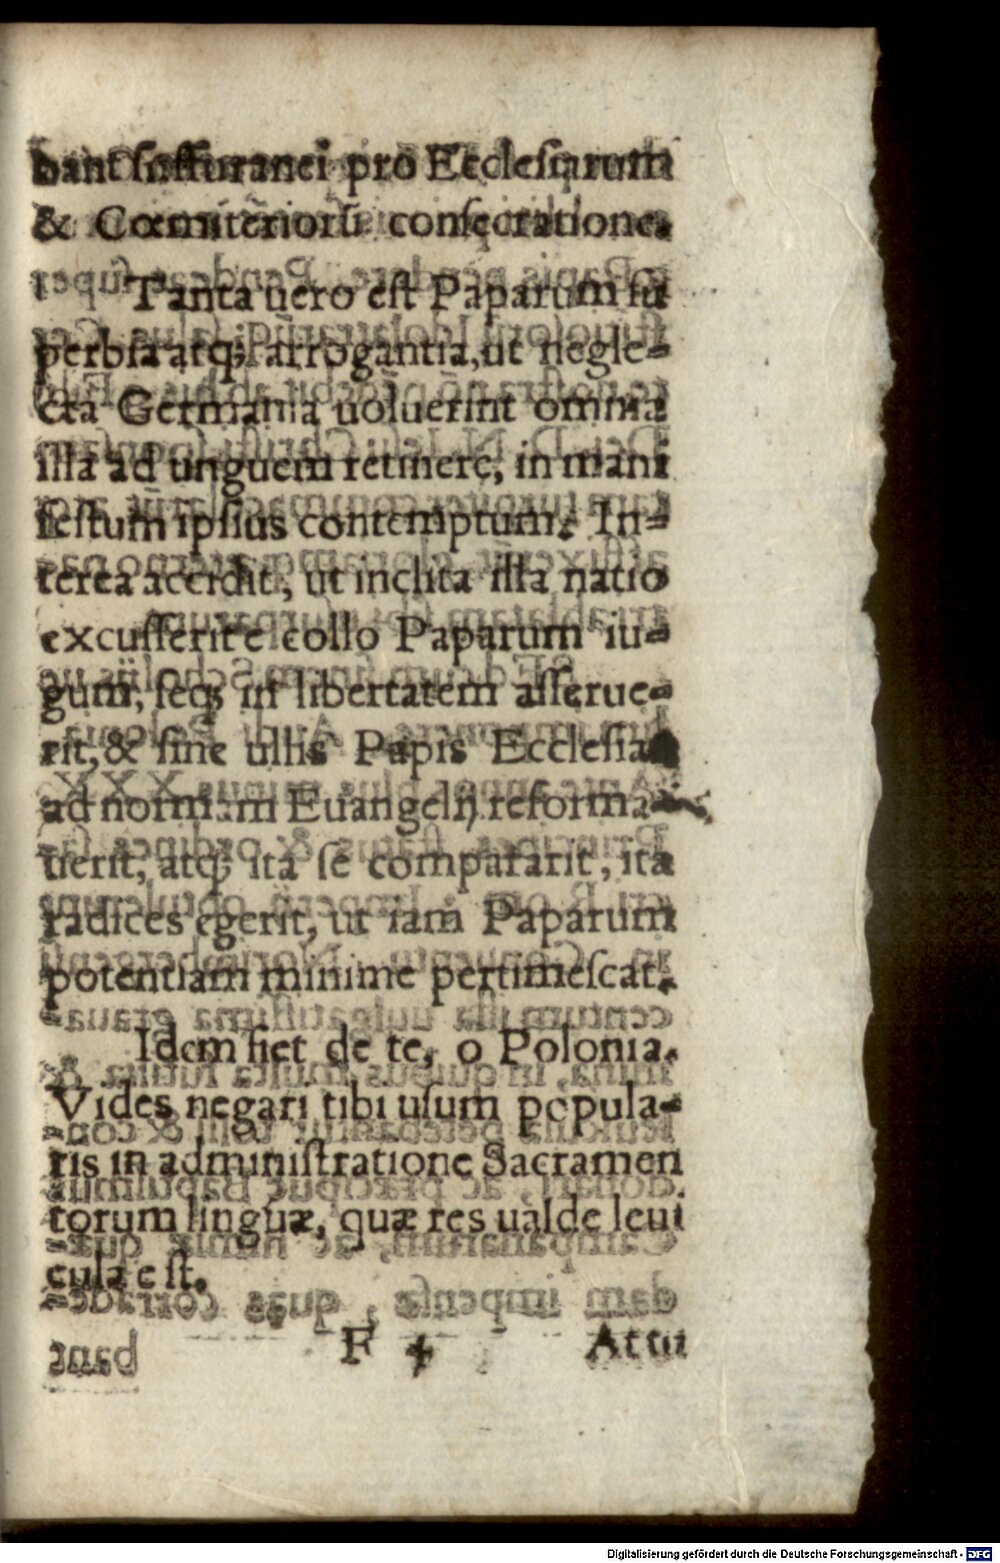 bant suffuranei pro Ecclesiarum
& Cœmiteriorũ consecratione.
Tanta uero est Paparum su
perbia atq; arrogantia, ut negle-
cta Germania uoluerint omnia
illa ad unguem retinere, in mani
festum ipsius contemptum. In-
terea accidit, ut inclita illa natio
excusserit e collo Paparum iu-
gum, seq; in libertatem asserue-
rit, & sine ullis Papis Ecclesias
ad normam Euangelij reforma-
uerit, atq; ita se compararit, ita
radices egerit, ut iam Paparum
potentiam minime pertimescat.
Idem fiet de te, o Polonia.
Vides negari tibi usum popula-
ris in administratione Sacramen
torum linguæ, quæ res ualde leui
cula est.
F 4 At tu
Digitalisierung gefördert durch die Deutsche Forschungsgemeinschaft - DFG